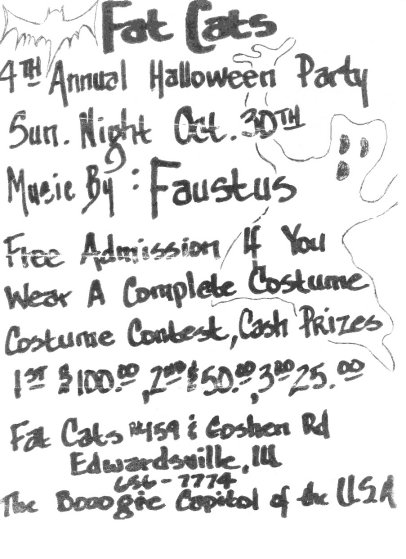 Fat Cats
4TH Annual Halloween Party
Sun. Night Oct. 30TH
Music By: Faustus
Free Admission If You
Wear A Complete Costume
Costume Contest, Cash Prizes
1ST $100.00, 2ND $50.00, 3RD 25.00
Fat Cats Rt 159 & Goshen Rd
Edwardsville, Ill
656-7774
The Booogie Capitol of the USA